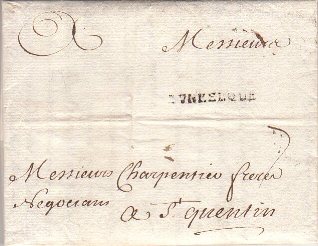 Messieurs
DUNKERQUE
Messieurs Charpentier freres
Negocians
a St quentin